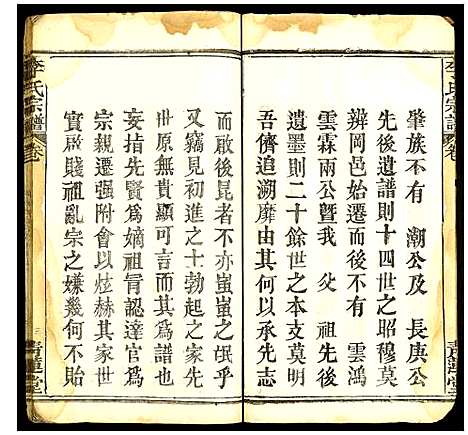 李氏宗譜
卷
肇族不有 潮公及 長庚公
先後遺譜則十四世之昭穆莫
辨岡邑始遷而後不有 雲鴻
雲霖兩公暨我 父 祖先後
遺墨則二十餘世之本支莫明
吾儕追溯靡由其何以承先志
而啟後昆者不亦蚩蚩之氓乎
又竊見初進之士勃起之家先
世原無貴顯可言而其為譜也
妄指先賢為嫡祖肯認達官為
宗親遷强附會以炫赫其家世
實啟賤祖亂宗之嫌幾何不貽
李氏宗譜
卷
青蓮堂